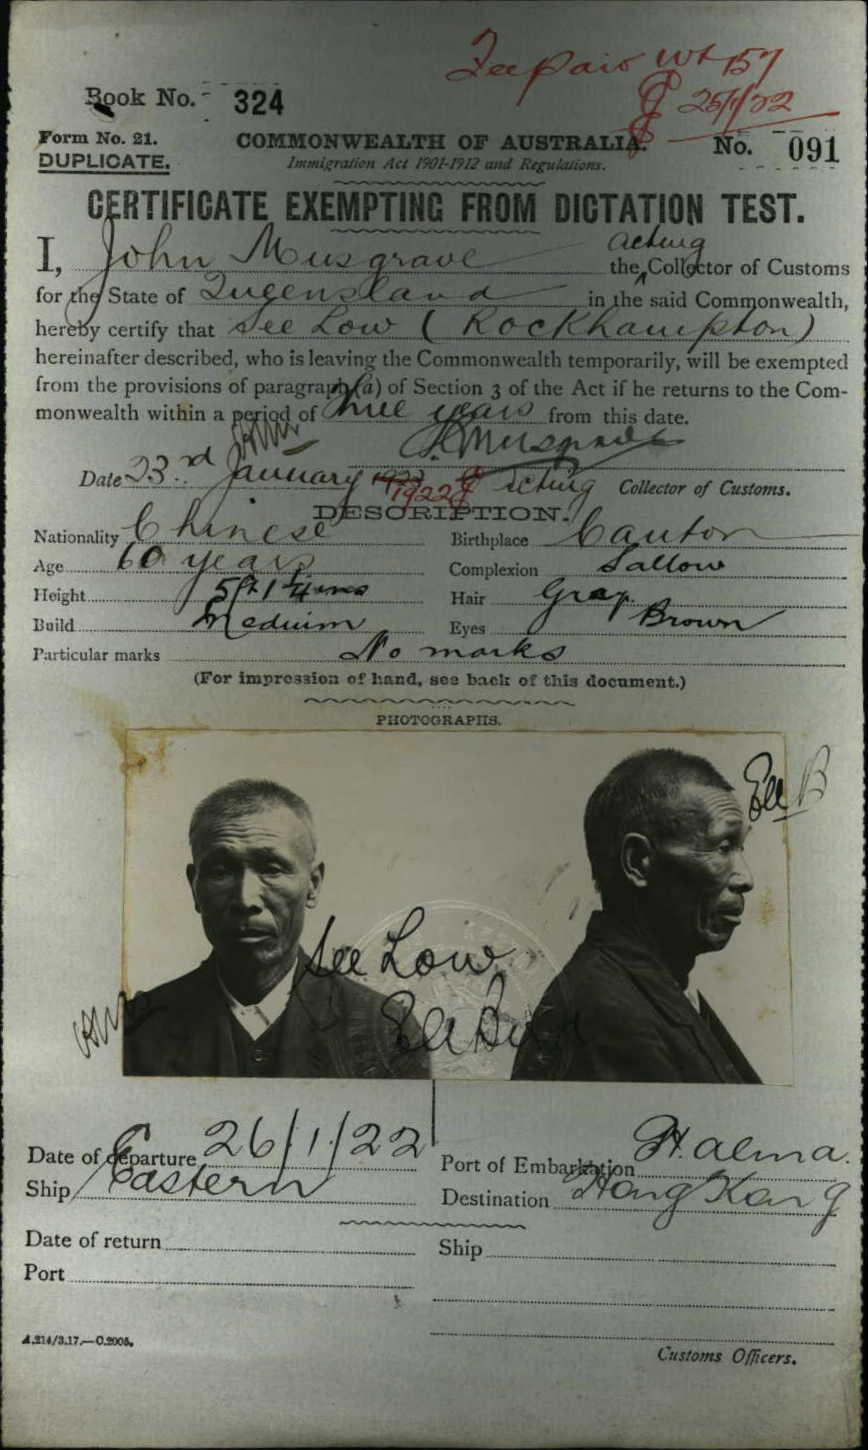 Fee paid
25/1/22
Book No. 324
Form No. 21.
DUPLICATE.
COMMONWEALTH OF AUSTRALIA.
Immigration Act 1901-1912 and Regulations.
No. 091
CERTIFICATE EXEMPTING FROM DICTATION TEST.
I, John Musgrave the acting Collector of Customs
for the State of Queensland in the said Commonwealth,
hereby certify that See Low (Rockhampton)
hereinafter described, who is leaving the Commonwealth temporarily, will be exempted
from the provisions of paragraph (a) of Section 3 of the Act if he returns to the Com-
monwealth within a period of three years from this date.
J. Musgrave
Date 23rd January 1922 acting Collector of Customs.
DESCRIPTION.
Nationality Chinese Birthplace Canton
Age 60 years Complexion Sallow
Height 5ft 1¼ins Hair Gray.
Build Medium Eyes Brown
Particular marks No marks
(For impression of hand, see back of this document.)
PHOTOGRAPHS.
See Low
Date of departure 26/1/22 Port of Embarkation
Ship Eastern Destination Hong Kong
Date of return Ship
Port
A.214/3.17.—C.2905.
Customs Officers.